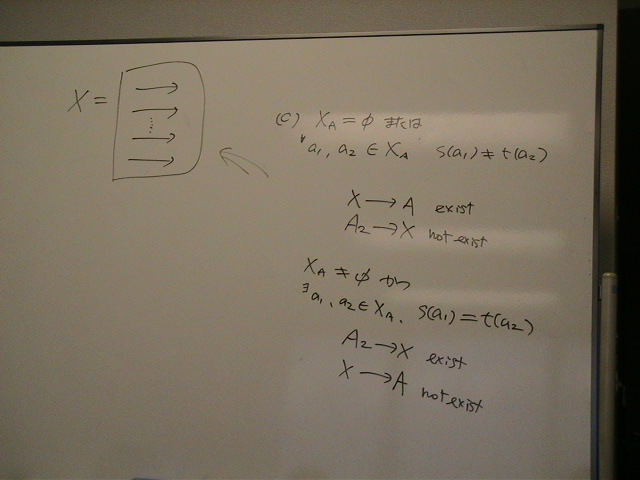 X =
(c) X_A = φ または
∀a₁, a₂ ∈ X_A s(a₁) ≠ t(a₂)
X → A exist
A₂ → X not exist
X_A ≠ φ かつ
∃a₁, a₂ ∈ X_A, s(a₁) = t(a₂)
A₂ → X exist
X → A not exist